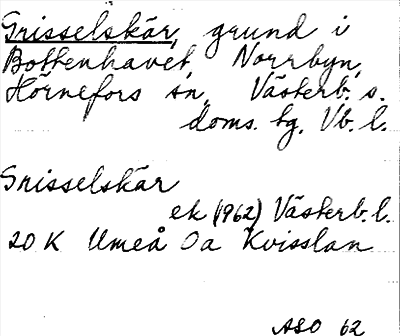 Grisselskär, grund i
Bottenhavet, Norrbyn,
Hörnefors sn, Västerb. s.
doms. tg, Vb. l.
Grisselskär
ek (1962) Västerb. l.
20 K Umeå Oa Kvisslan
ASO 62